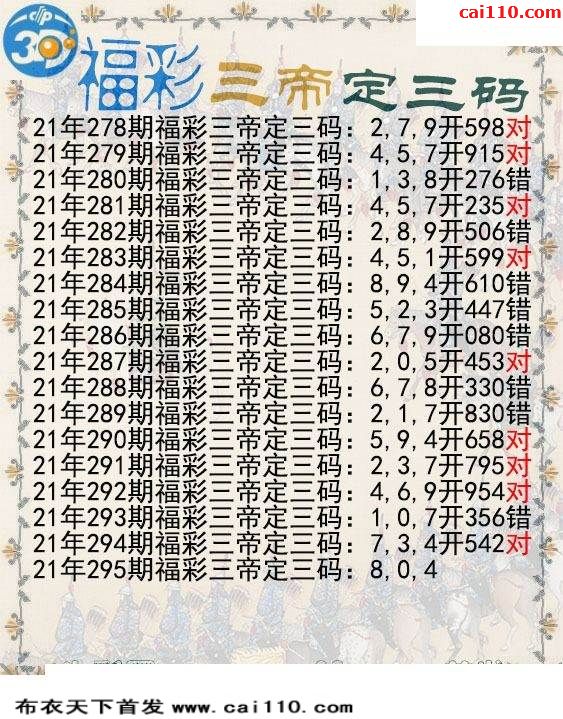 cai110.com
3D
福彩三帝定三码
21年278期福彩三帝定三码：2,7,9开598对
21年279期福彩三帝定三码：4,5,7开915对
21年280期福彩三帝定三码：1,3,8开276错
21年281期福彩三帝定三码：4,5,7开235对
21年282期福彩三帝定三码：2,8,9开506错
21年283期福彩三帝定三码：4,5,1开599对
21年284期福彩三帝定三码：8,9,4开610错
21年285期福彩三帝定三码：5,2,3开447错
21年286期福彩三帝定三码：6,7,9开080错
21年287期福彩三帝定三码：2,0,5开453对
21年288期福彩三帝定三码：6,7,8开330错
21年289期福彩三帝定三码：2,1,7开830错
21年290期福彩三帝定三码：5,9,4开658对
21年291期福彩三帝定三码：2,3,7开795对
21年292期福彩三帝定三码：4,6,9开954对
21年293期福彩三帝定三码：1,0,7开356错
21年294期福彩三帝定三码：7,3,4开542对
21年295期福彩三帝定三码：8,0,4
布衣天下首发 www.cai110.com